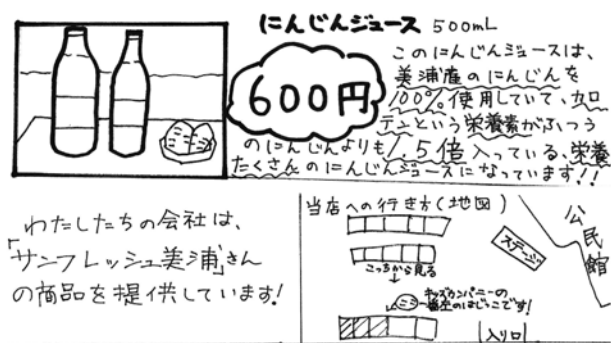 にんじんジュース 500mL
600円
このにんじんジュースは、
美浦産のにんじんを
100%使用していて、カロ
テンという栄養素がふつう
のにんじんよりも1.5倍入っている、栄養
たくさんのにんじんジュースになっています!!
わたしたちの会社は、
「サンフレッシュ美浦」さん
の商品を提供しています!
当店への行き方(地図)
公民館
ステージ
こっちから見る
キッズカンパニーの
一番左のはじっこです!
入り口